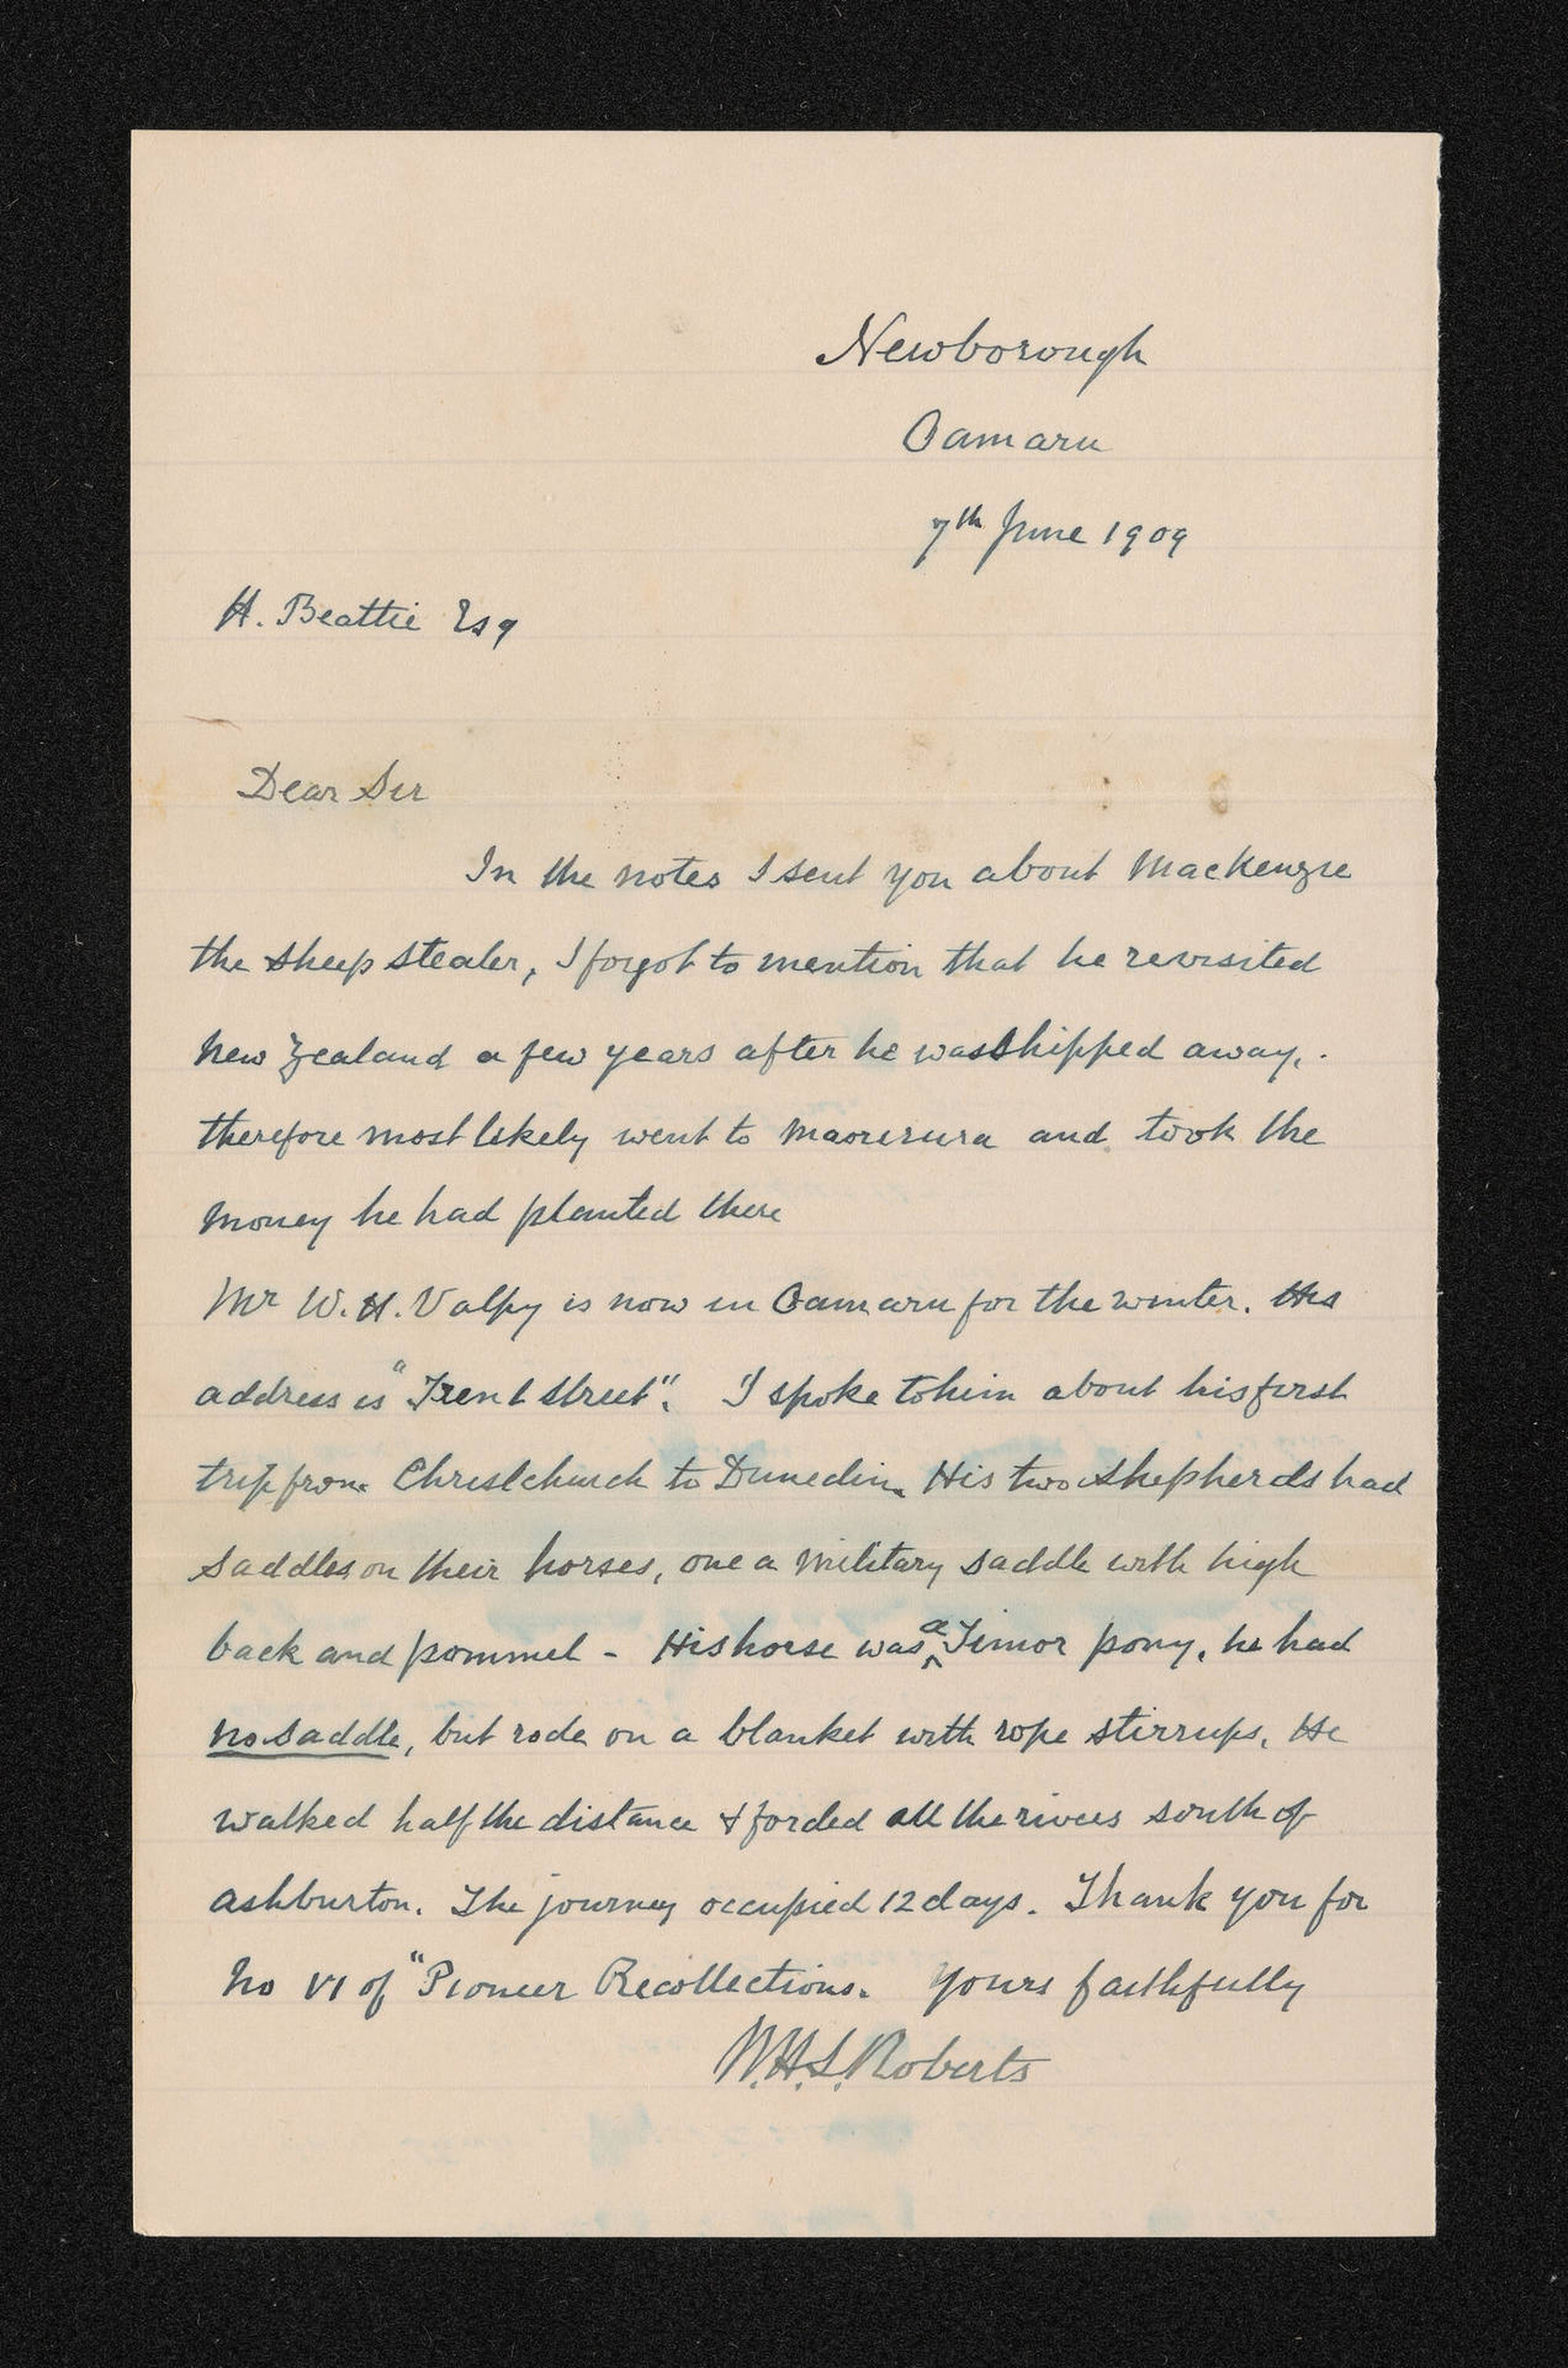 Newborough
Oamaru
7th June 1909
H. Beattie Esq
Dear Sir
In the notes I sent you about Mackenzie
the sheep stealer, I forgot to mention that he revisited
New Zealand a few years after he was shipped away,.
therefore most likely went to Maorirura and took the
money he had planted there
Mr W. H. Valpy is now in Oamaru for the winter. His
address is "Trent Street". I spoke to him about his first
trip from Christchurch to Dunedin. His two shepherds had
saddles on their horses, one a military saddle with high
back and pommel - His horse was a Timor pony, he had
no saddle, but rode on a blanket with rope stirrups. He
walked half the distance & forded all the rivers south of
Ashburton. The journey occupied 12 days. Thank you for
No VI of "Pioneer Recollections. Yours faithfully
W.H.S. Roberts